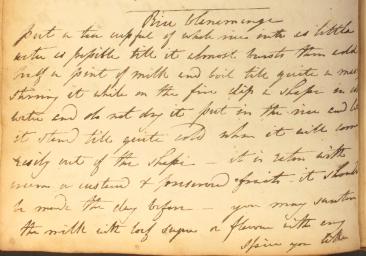 Rice blancmange
put a tea cupful of whole rice into as little
water as possible till it almost bursts then add
half a pint of milk and boil till quite a mash
stirring it while on the fire dip a shape in cold
water and do not dry it put in the rice and let
it stand till quite cold when it will come
easily out of the shape - it is eaten with
cream or custard & preserved fruits - it should
be made the day before - you may sweeten
the milk with loaf sugar or flavour with any
spice you like